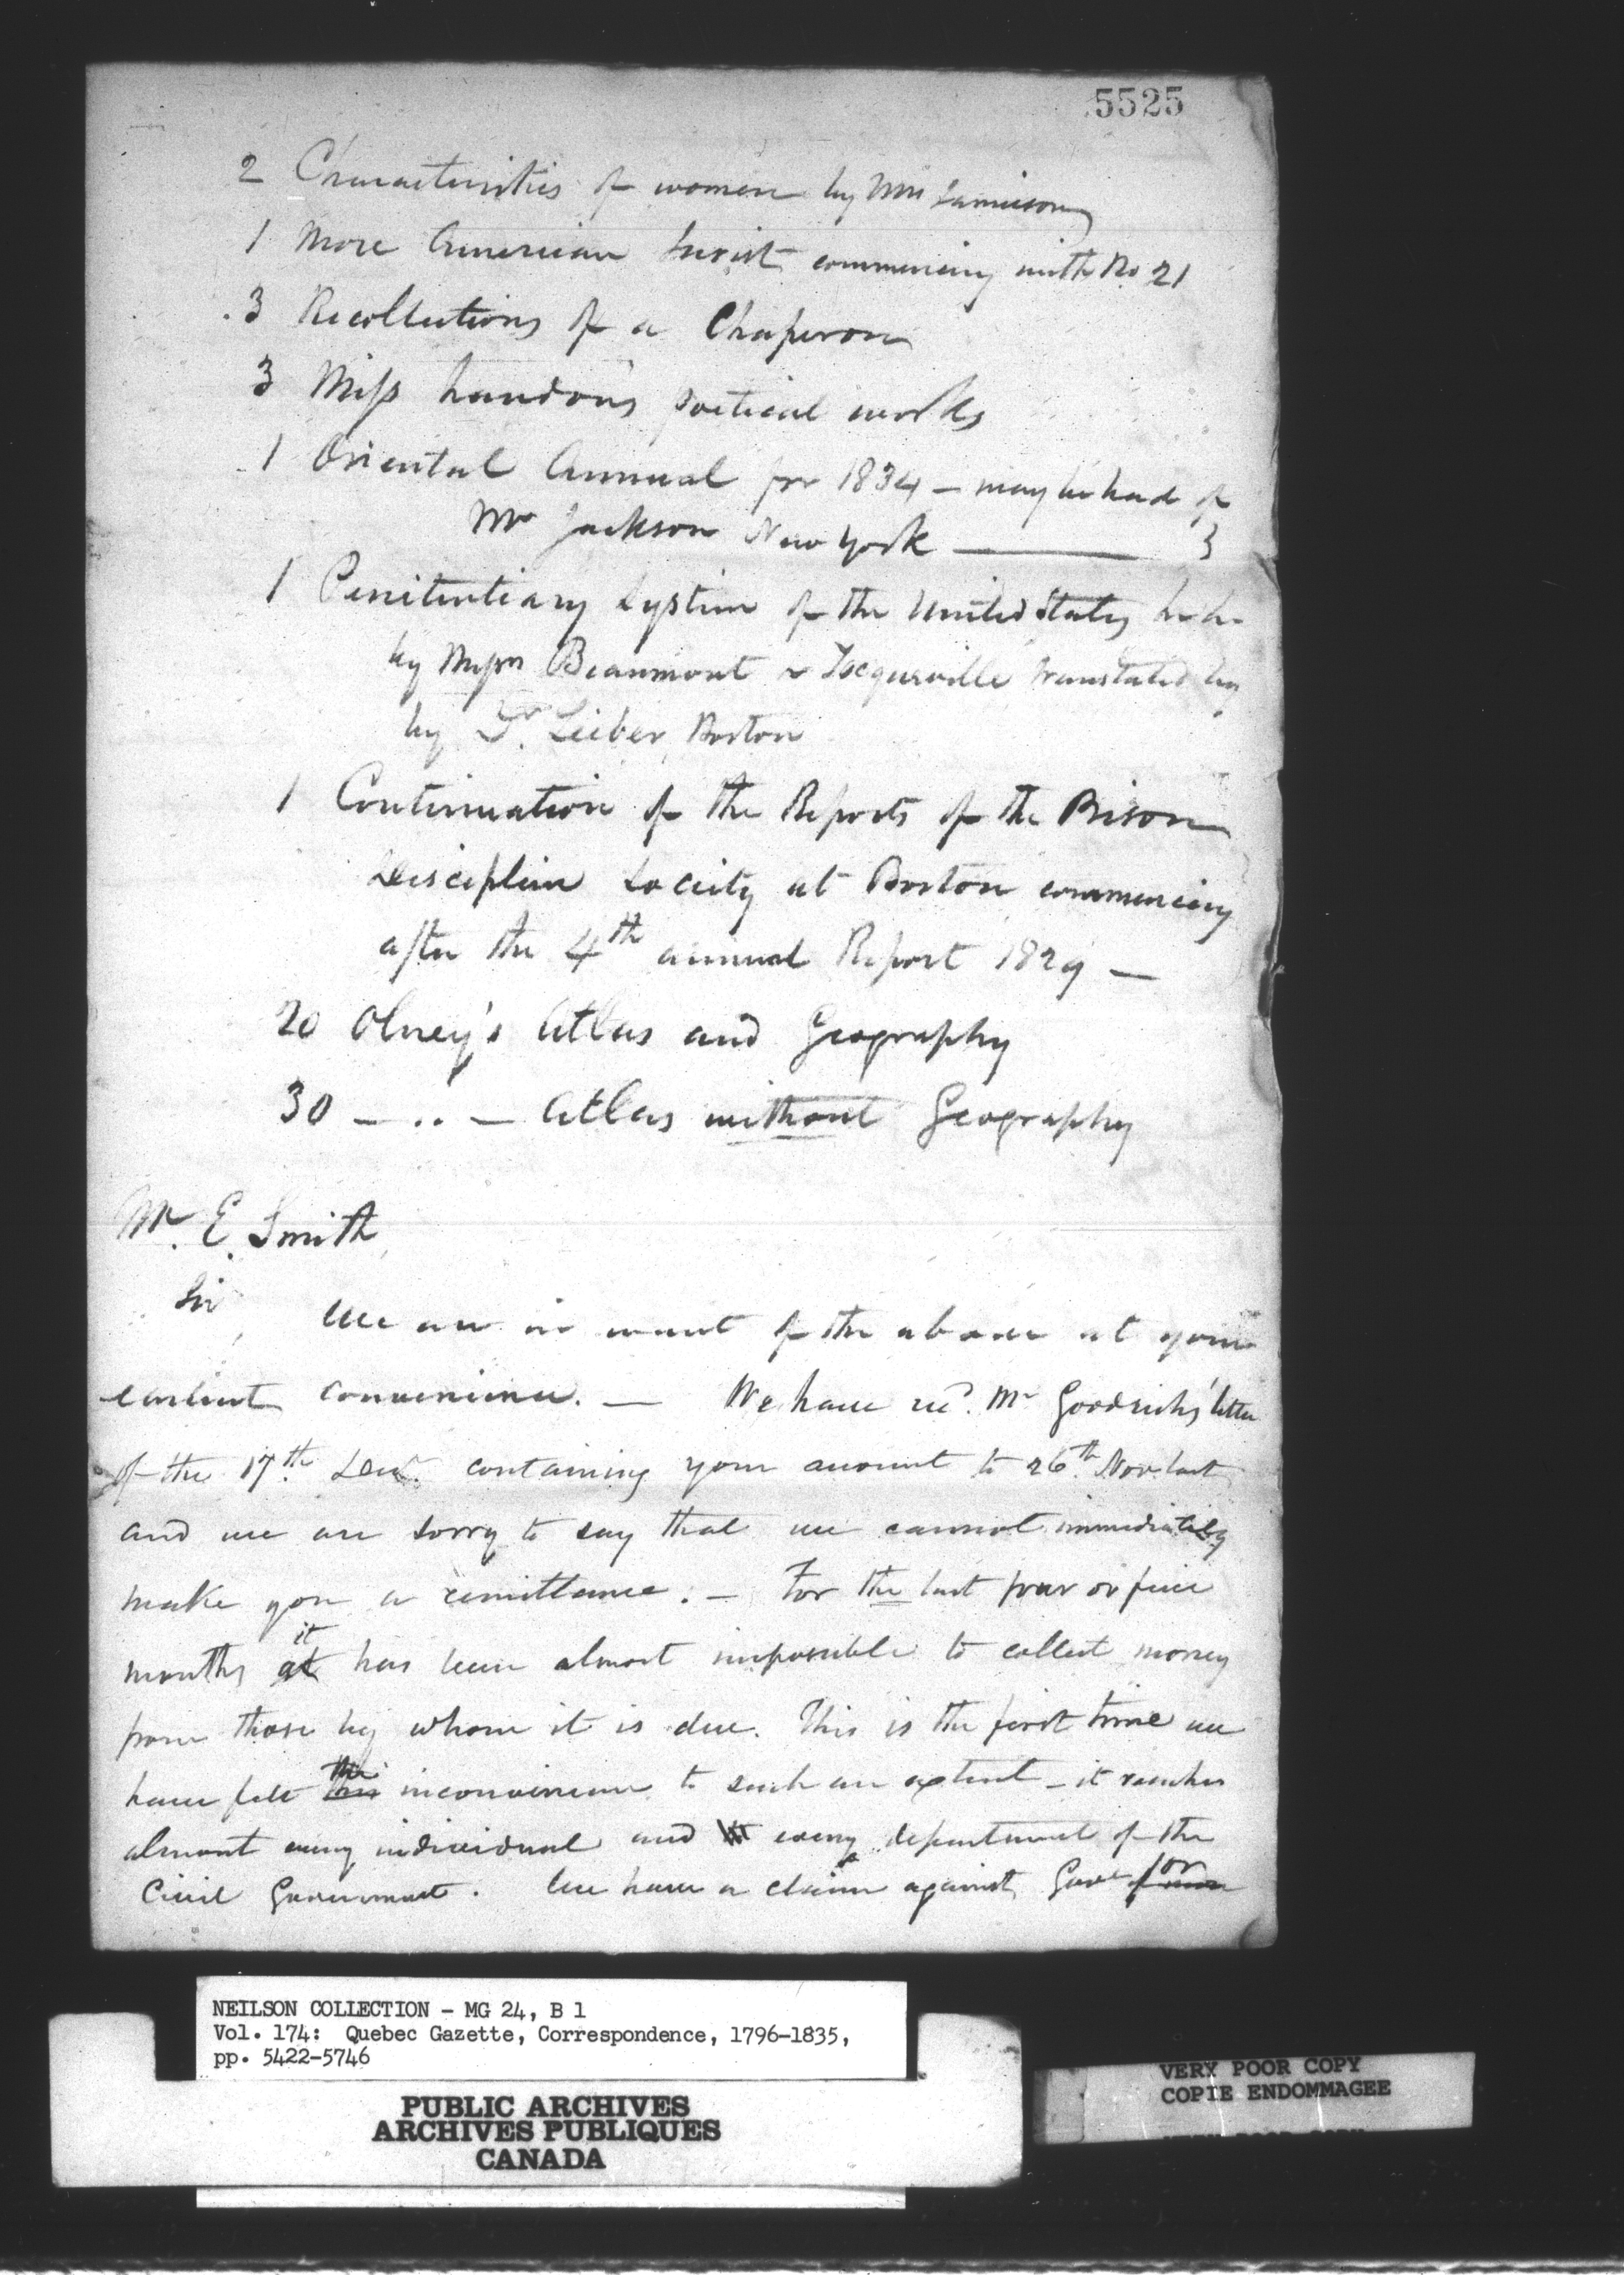 5525
2 Characteristics of women by Mrs Jamieson
1 More American Jurist commencing with No. 21
3 Recollections of a Chaperon
3 Miss Landon's poetical works
1 Oriental Annual for 1834 — may be had of
Mr Jackson New York —
1 Penitentiary System of the United States
by Messrs Beaumont & Tocqueville translated by
by Dr. Leiber, Boston
1 Continuation of the Reports of the Prison
Discipline Society at Boston commencing
after the 4th annual Report 1829 —
20 Olney's Atlas and Geography
30 — .. — Atlas without Geography
Mr. E. Smith,
Sir,
We are in want of the above at your
earliest convenience. — We have recd. Mr Goodrich's letter
of the 17th. Decr. containing your account to 26th. Nov last
and we are sorry to say that we cannot immediately
make you a remittance. — For the last four or five
months it at has been almost impossible to collect money
from those by whom it is due. This is the first time we
have felt the this inconvenience to such an extent — it reaches
almost every individual and every department of the
Civil Government. We have a claim against Govt for
NEILSON COLLECTION - MG 24, B 1
Vol. 174: Quebec Gazette, Correspondence, 1796-1835,
pp. 5422-5746
PUBLIC ARCHIVES
ARCHIVES PUBLIQUES
CANADA
VERY POOR COPY
COPIE ENDOMMAGEE